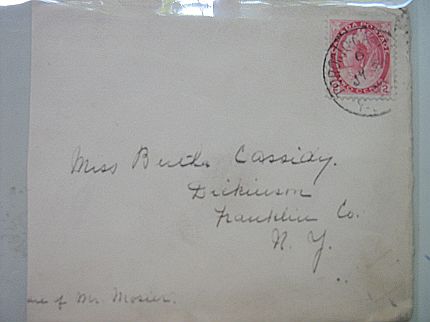 CANADA POSTAGE
2
Miss Bertha Cassidy.
Dickinson
Franklin Co.
N. Y.
of Mr Mosier.